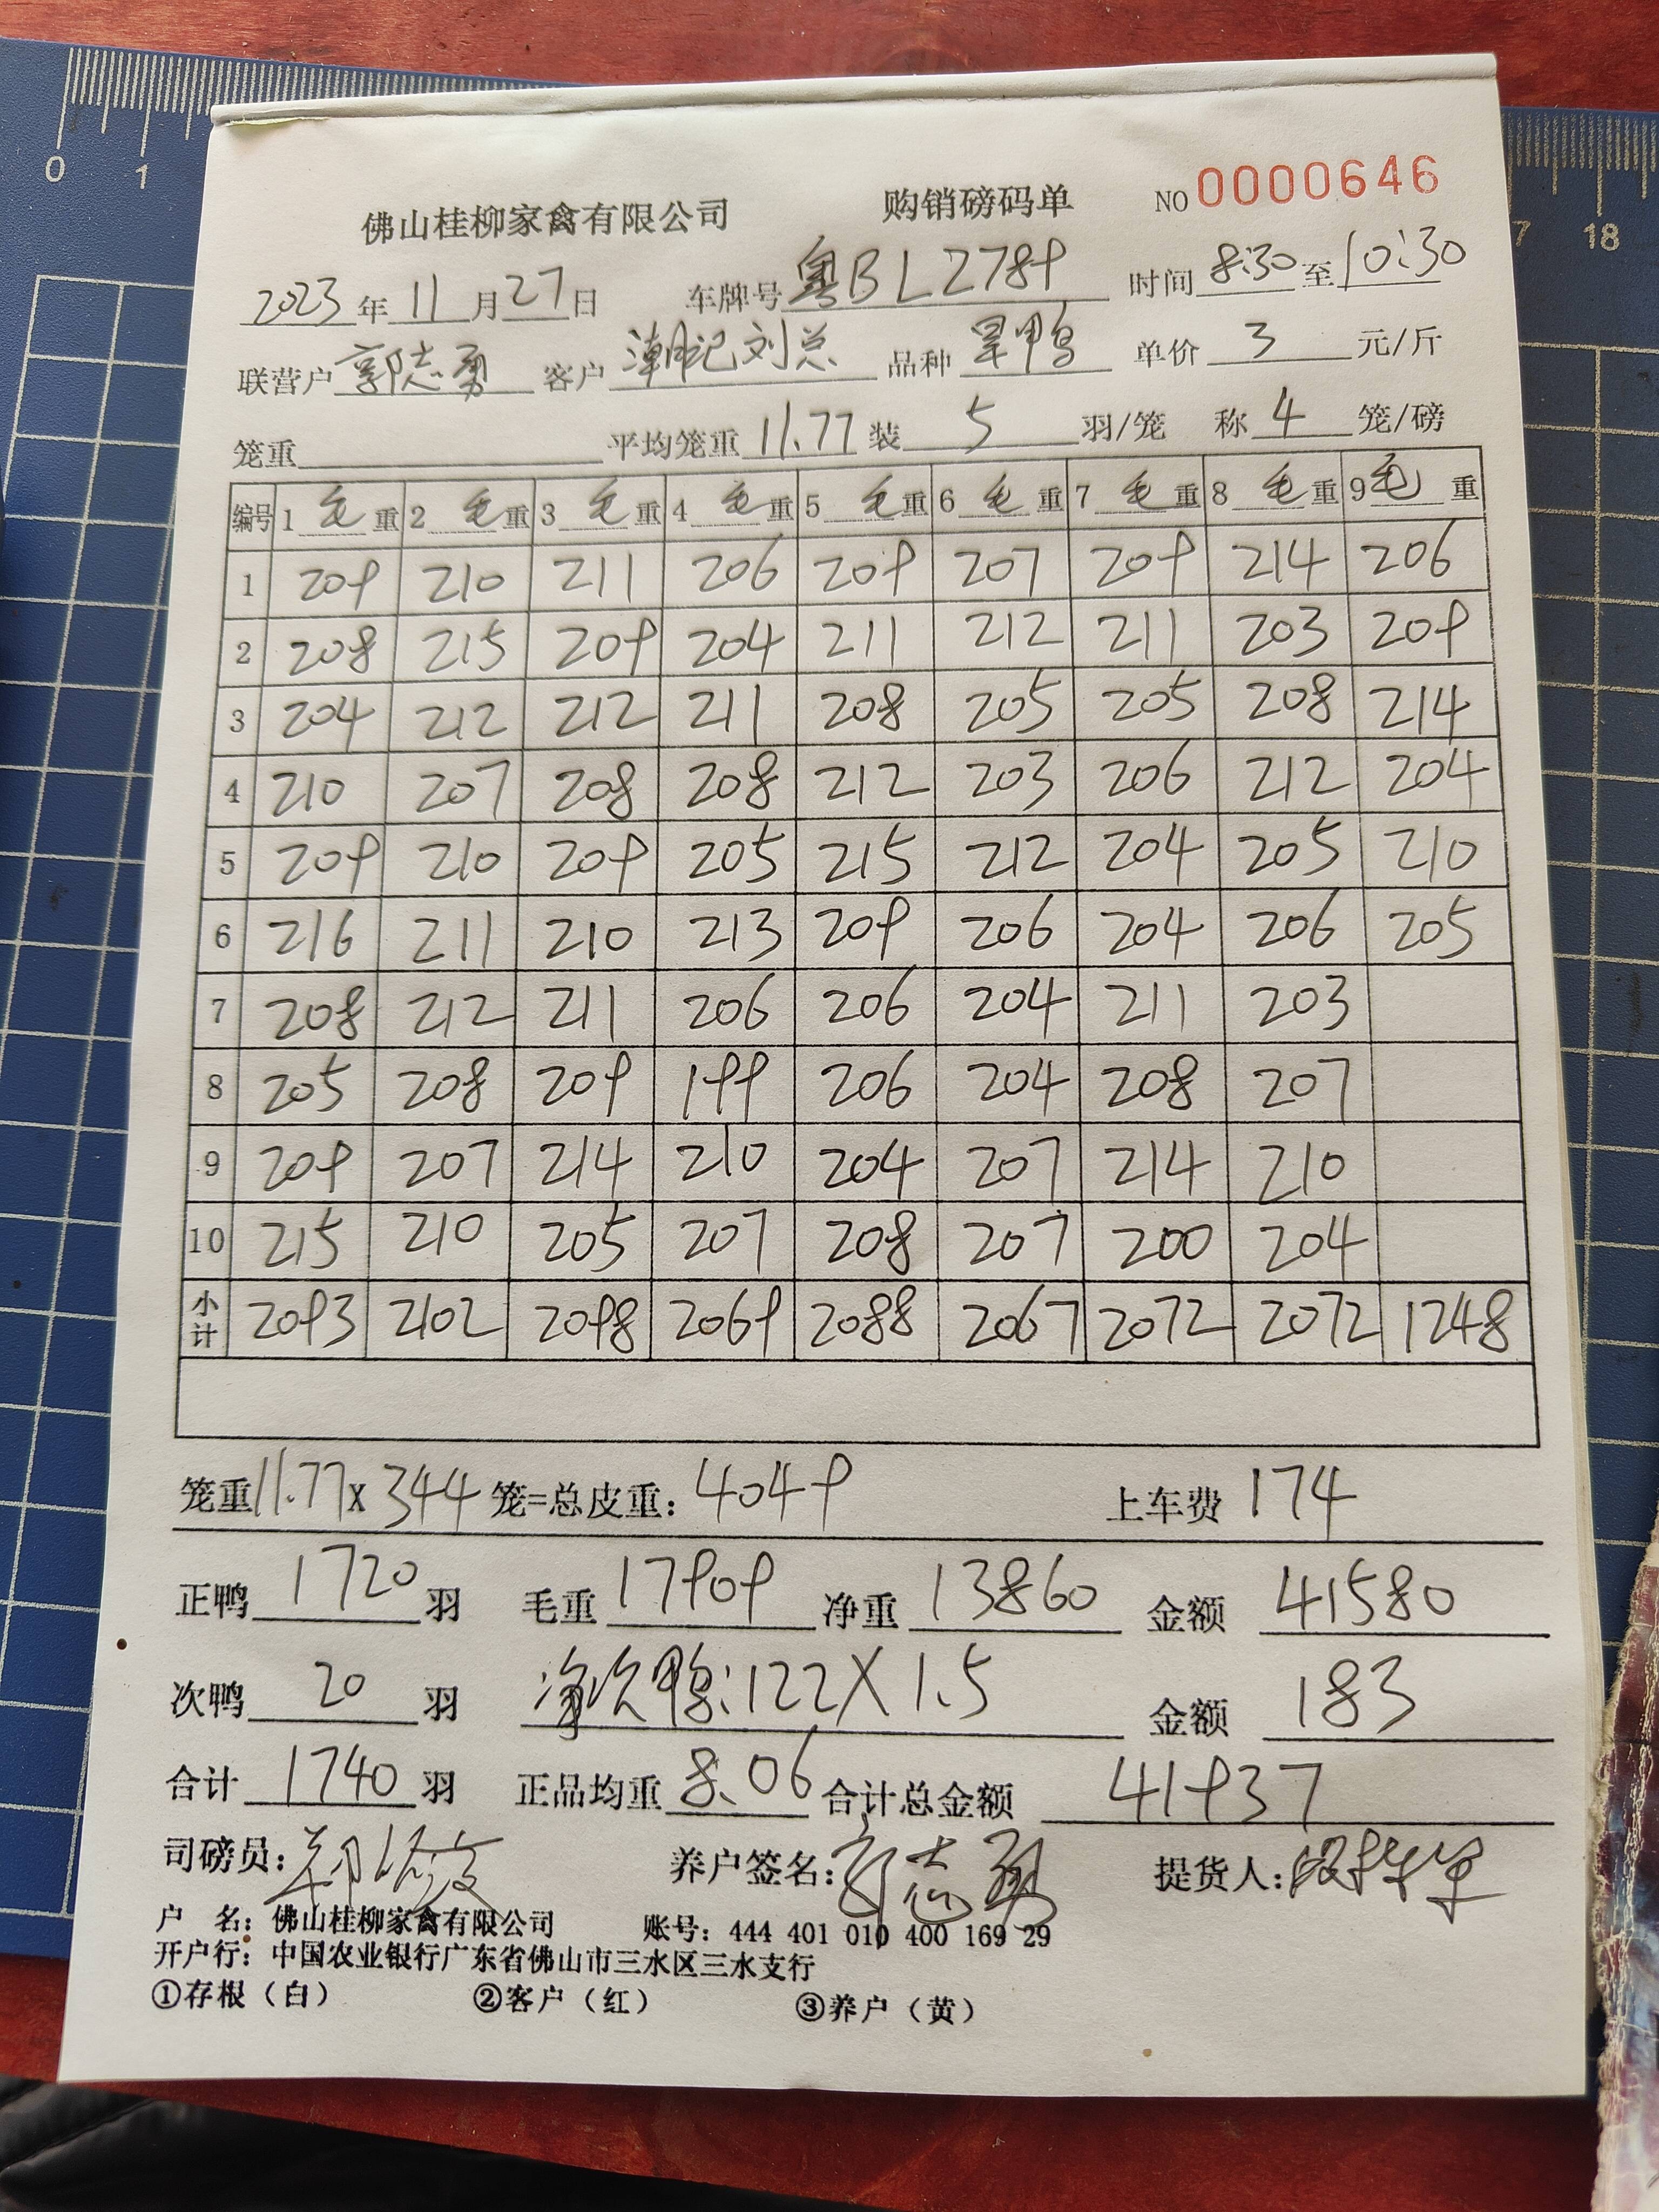 佛山桂柳家禽有限公司 购销磅码单 NO 0000646
2023年11月27日 车牌号 粤BLZ789 时间 8:30 至 10:30
联营户 郭志勇 客户 潮记刘总 品种 旱鸭 单价 3 元/斤
笼重 平均笼重 11.77 装 5 羽/笼 称 4 笼/磅
编号 1 毛重 2 毛重 3 毛重 4 毛重 5 毛重 6 毛重 7 毛重 8 毛重 9 毛重
1 209 210 211 206 209 207 209 214 206
2 208 215 209 204 211 212 211 203 209
3 204 212 212 211 208 205 205 208 214
4 210 207 208 208 212 203 206 212 204
5 209 210 209 205 215 212 204 205 210
6 216 211 210 213 209 206 204 206 205
7 208 212 211 206 206 204 211 203
8 205 208 209 199 206 204 208 207
9 209 207 214 210 204 207 214 210
10 215 210 205 207 208 207 200 204
小计 2093 2102 2098 2069 2088 2067 2072 2072 1248
笼重 11.77 X 344 笼=总皮重: 4049 上车费 174
正鸭 1720 羽 毛重 17909 净重 13860 金额 41580
次鸭 20 羽 净次鸭:122X1.5 金额 183
合计 1740 羽 正品均重 8.06 合计总金额 41937
司磅员: 养户签名: 郭志勇 提货人:
户 名: 佛山桂柳家禽有限公司 账号: 444 401 010 400 169 29
开户行: 中国农业银行广东省佛山市三水区三水支行
①存根（白） ②客户（红） ③养户（黄）
0 1 7 18